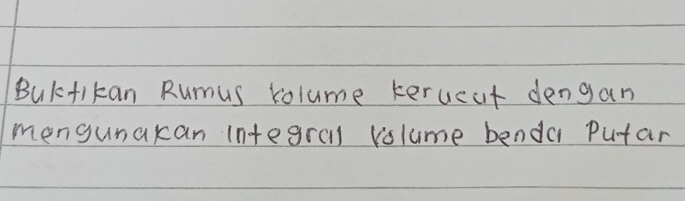 Buktikan Rumus Volume kerucut dengan
mengunakan integral Volume benda Putar